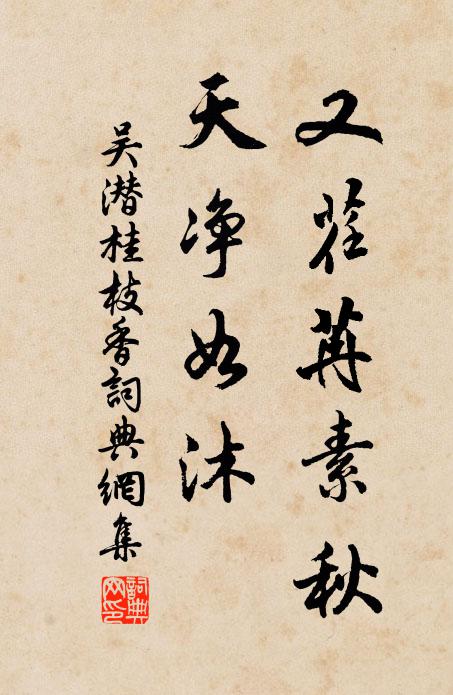 又荏苒素秋
天净如沐
吴潜桂枝香詞典網集
詞典网印